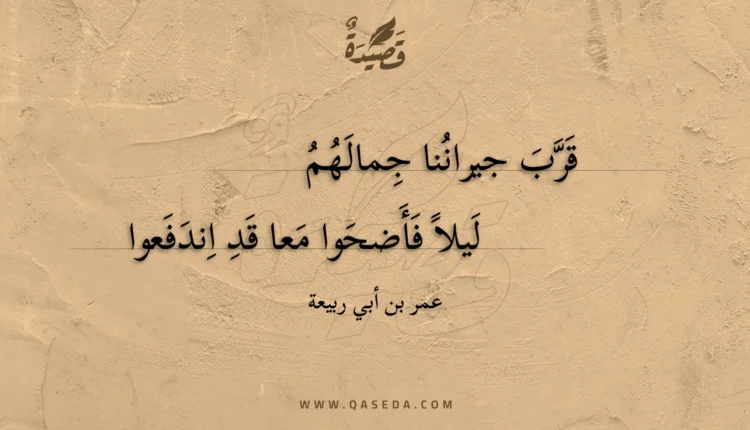 قَصِيدَةٌ
قَرَّبَ جيرانُنا جِمالَهُمُ
لَيلاً فَأَضحَوا مَعا قَدِ اِندَفَعوا
عمر بن أبي ربيعة
WWW.QASEDA.COM